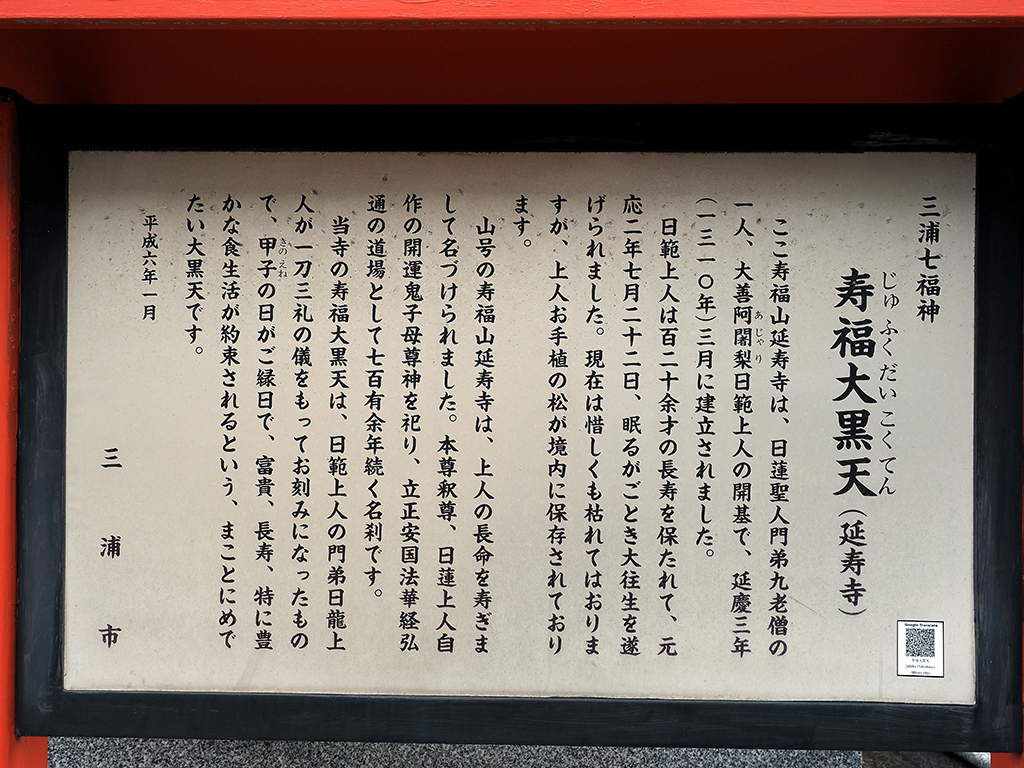 三浦七福神
じゅふくだいこくてん
寿福大黒天（延寿寺）
ここ寿福山延寿寺は、日蓮聖人門弟九老僧の
あじゃり
一人、大善阿闍梨日範上人の開基で、延慶三年
（一三一〇年）三月に建立されました。
日範上人は百二十余才の長寿を保たれて、元
応二年七月二十二日、眠るがごとき大往生を遂
げられました。現在は惜しくも枯れてはおりま
すが、上人お手植の松が境内に保存されており
ます。
山号の寿福山延寿寺は、上人の長命を寿ぎま
して名づけられました。本尊釈尊、日蓮上人自
作の開運鬼子母尊神を祀り、立正安国法華経弘
通の道場として七百有余年続く名刹です。
当寺の寿福大黒天は、日範上人の門弟日龍上
人が一刀三礼の儀をもってお刻みになったもの
きのえね
で、甲子の日がご縁日で、富貴、長寿、特に豊
かな食生活が約束されるという、まことにめで
たい大黒天です。
平成六年一月
三浦市
Google Translate